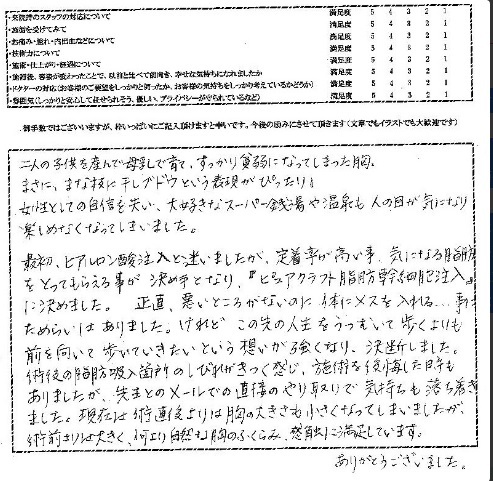 ・来院時のスタッフの対応について 満足度 5 4 3 2 1
・施術を受けてみて 満足度 5 4 3 2 1
・お痛み・腫れ・内出血などについて 満足度 5 4 3 2 1
・技術力について 満足度 5 4 3 2 1
・施術・仕上がり・経過について 満足度 5 4 3 2 1
・施術後、容姿が変わったことで、以前と比べて前向き、幸せな気持ちになれましたか 満足度 5 4 3 2 1
・ドクターの対応(お客様のご要望をしっかりと伺ったか、お客様の気持ちをしっかり考えているかどうか) 満足度 5 4 3 2 1
・雰囲気(しっかりと安心して任せられそう、優しい、プライバシーが守られているなど) 満足度 5 4 3 2 1
御手数ではございいますが、枠いっぱいにご記入頂けますと幸いです。今後の励みにさせて頂きます(文章でもイラストでも大歓迎です)
二人の子供を産んで母乳で育て、すっかり貧弱になってしまった胸。
まさに、まな板に干しブドウという表現がぴったり!
女性としての自信を失い、大好きなスーパー銭湯や温泉も人の目が気になり
楽しめなくなってしまいました。
最初、ヒアルロン酸注入と迷いましたが、定着率が高い事、気になる脂肪
をとってもらえる事が決め手となり、『ピュアグラフト脂肪幹細胞注入』
に決めました。 正直、悪いところがないのに体にメスを入れる…事に
ためらいはありました。けれど この先の人生をうつむいて歩くよりも
前を向いて歩いていきたいという想いが強くなり、決断しました。
術後の脂肪吸入箇所のしびれがきつく感じ、施術を後悔した時も
ありましたが、先生とのメールでの直接のやり取りで気持ちも落ち着き
ました。現在は術直後よりは胸の大きさも小さくなってしまいましたが、
術前よりは大きく、何より自然な胸のふくらみ、感触に満足しています。
ありがとうございました。